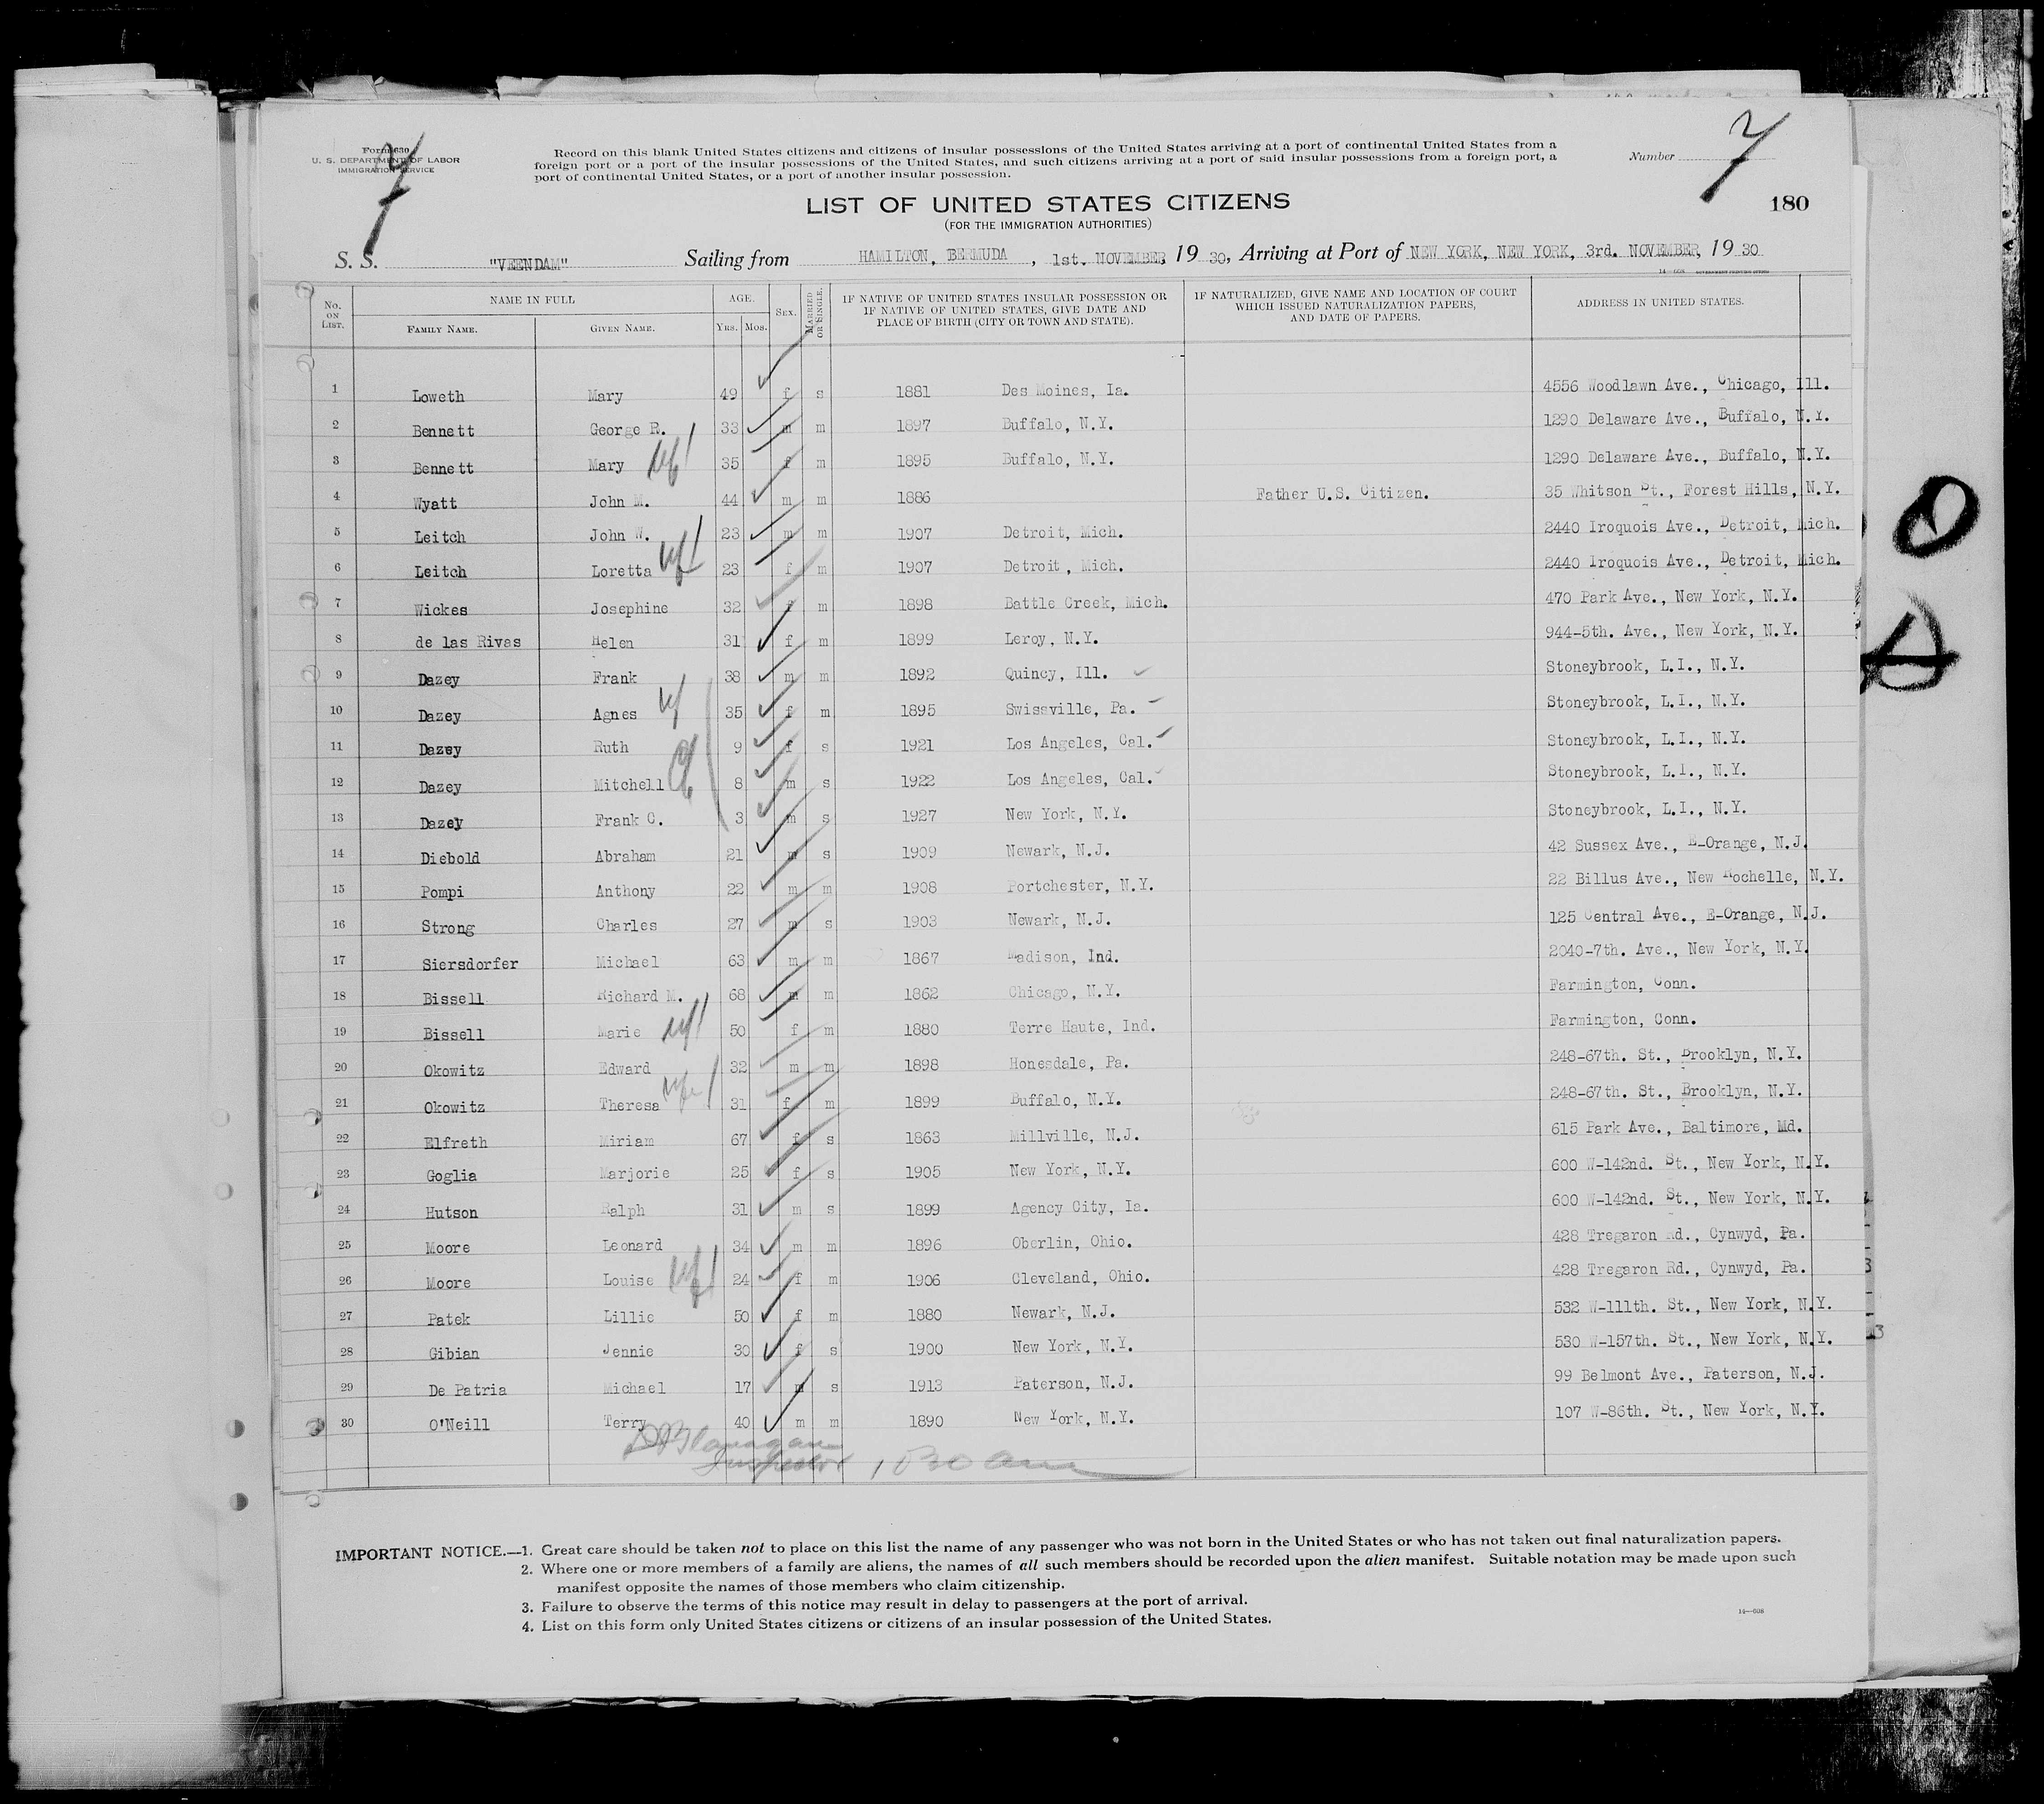 Form 630
U. S. DEPARTMENT OF LABOR
IMMIGRATION SERVICE
7
Record on this blank United States citizens and citizens of insular possessions of the United States arriving at a port of continental United States from a
foreign port or a port of the insular possessions of the United States, and such citizens arriving at a port of said insular possessions from a foreign port, a
port of continental United States, or a port of another insular possession.
Number 7
180
LIST OF UNITED STATES CITIZENS
(FOR THE IMMIGRATION AUTHORITIES)
S. S. "VEENDAM" Sailing from HAMILTON, BERMUDA, 1st. NOVEMBER, 19 30, Arriving at Port of NEW YORK, NEW YORK, 3rd. NOVEMBER, 19 30
14—608 GOVERNMENT PRINTING OFFICE
No. ON LIST. NAME IN FULL FAMILY NAME. GIVEN NAME. AGE. YRS. MOS. SEX. MARRIED OR SINGLE. IF NATIVE OF UNITED STATES INSULAR POSSESSION OR IF NATIVE OF UNITED STATES, GIVE DATE AND PLACE OF BIRTH (CITY OR TOWN AND STATE). IF NATURALIZED, GIVE NAME AND LOCATION OF COURT WHICH ISSUED NATURALIZATION PAPERS, AND DATE OF PAPERS. ADDRESS IN UNITED STATES.
1 Loweth Mary 49 f s 1881 Des Moines, Ia. 4556 Woodlawn Ave., Chicago, Ill.
2 Bennett George R. 33 m m 1897 Buffalo, N.Y. 1290 Delaware Ave., Buffalo, N.Y.
3 Bennett Mary wf 35 f m 1895 Buffalo, N.Y. 1290 Delaware Ave., Buffalo, N.Y.
4 Wyatt John M. 44 m m 1886 Father U.S. Citizen. 35 Whitson St., Forest Hills, N.Y.
5 Leitch John W. 23 m m 1907 Detroit, Mich. 2440 Iroquois Ave., Detroit, Mich.
6 Leitch Loretta wf 23 f m 1907 Detroit, Mich. 2440 Iroquois Ave., Detroit, Mich.
7 Wickes Josephine 32 f m 1898 Battle Creek, Mich. 470 Park Ave., New York, N.Y.
8 de las Rivas Helen 31 f m 1899 Leroy, N.Y. 944-5th. Ave., New York, N.Y.
9 Dazey Frank 38 m m 1892 Quincy, Ill. Stoneybrook, L.I., N.Y.
10 Dazey Agnes wf 35 f m 1895 Swissville, Pa. Stoneybrook, L.I., N.Y.
11 Dazey Ruth 9 f s 1921 Los Angeles, Cal. Stoneybrook, L.I., N.Y.
12 Dazey Mitchell 8 m s 1922 Los Angeles, Cal. Stoneybrook, L.I., N.Y.
13 Dazey Frank C. 3 m s 1927 New York, N.Y. Stoneybrook, L.I., N.Y.
14 Diebold Abraham 21 m s 1909 Newark, N.J. 42 Sussex Ave., E-Orange, N.J.
15 Pompi Anthony 22 m m 1908 Portchester, N.Y. 22 Billus Ave., New Rochelle, N.Y.
16 Strong Charles 27 m s 1903 Newark, N.J. 125 Central Ave., E-Orange, N.J.
17 Siersdorfer Michael 63 m m 1867 Madison, Ind. 2040-7th. Ave., New York, N.Y.
18 Bissell Richard M. 68 m m 1862 Chicago, N.Y. Farmington, Conn.
19 Bissell Marie wf 50 f m 1880 Terre Haute, Ind. Farmington, Conn.
20 Okowitz Edward 32 m m 1898 Honesdale, Pa. 248-67th. St., Brooklyn, N.Y.
21 Okowitz Theresa wfe 31 f m 1899 Buffalo, N.Y. 248-67th. St., Brooklyn, N.Y.
22 Elfreth Miriam 67 f s 1863 Millville, N.J. 615 Park Ave., Baltimore, Md.
23 Goglia Marjorie 25 f s 1905 New York, N.Y. 600 W-142nd. St., New York, N.Y.
24 Hutson Ralph 31 m s 1899 Agency City, Ia. 600 W-142nd. St., New York, N.Y.
25 Moore Leonard 34 m m 1896 Oberlin, Ohio. 428 Tregaron Rd., Cynwyd, Pa.
26 Moore Louise wf 24 f m 1906 Cleveland, Ohio. 428 Tregaron Rd., Cynwyd, Pa.
27 Patek Lillie 50 f m 1880 Newark, N.J. 532 W-111th. St., New York, N.Y.
28 Gibian Jennie 30 f s 1900 New York, N.Y. 530 W-157th. St., New York, N.Y.
29 De Patria Michael 17 m s 1913 Paterson, N.J. 99 Belmont Ave., Paterson, N.J.
30 O'Neill Terry 40 m m 1890 New York, N.Y. 107 W-86th. St., New York, N.Y.
Inspector 1030 am
IMPORTANT NOTICE.—1. Great care should be taken not to place on this list the name of any passenger who was not born in the United States or who has not taken out final naturalization papers.
2. Where one or more members of a family are aliens, the names of all such members should be recorded upon the alien manifest. Suitable notation may be made upon such
manifest opposite the names of those members who claim citizenship.
3. Failure to observe the terms of this notice may result in delay to passengers at the port of arrival.
4. List on this form only United States citizens or citizens of an insular possession of the United States.
14—608